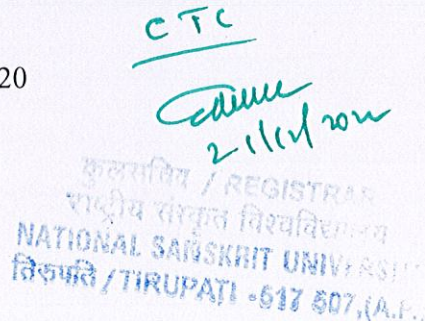 20
CTC
21/12/2022
कुलसचिव / REGISTRAR
राष्ट्रीय संस्कृत विश्वविद्यालय
NATIONAL SANSKRIT UNIVERSITY
तिरुपति / TIRUPATI -517 507,(A.P.)